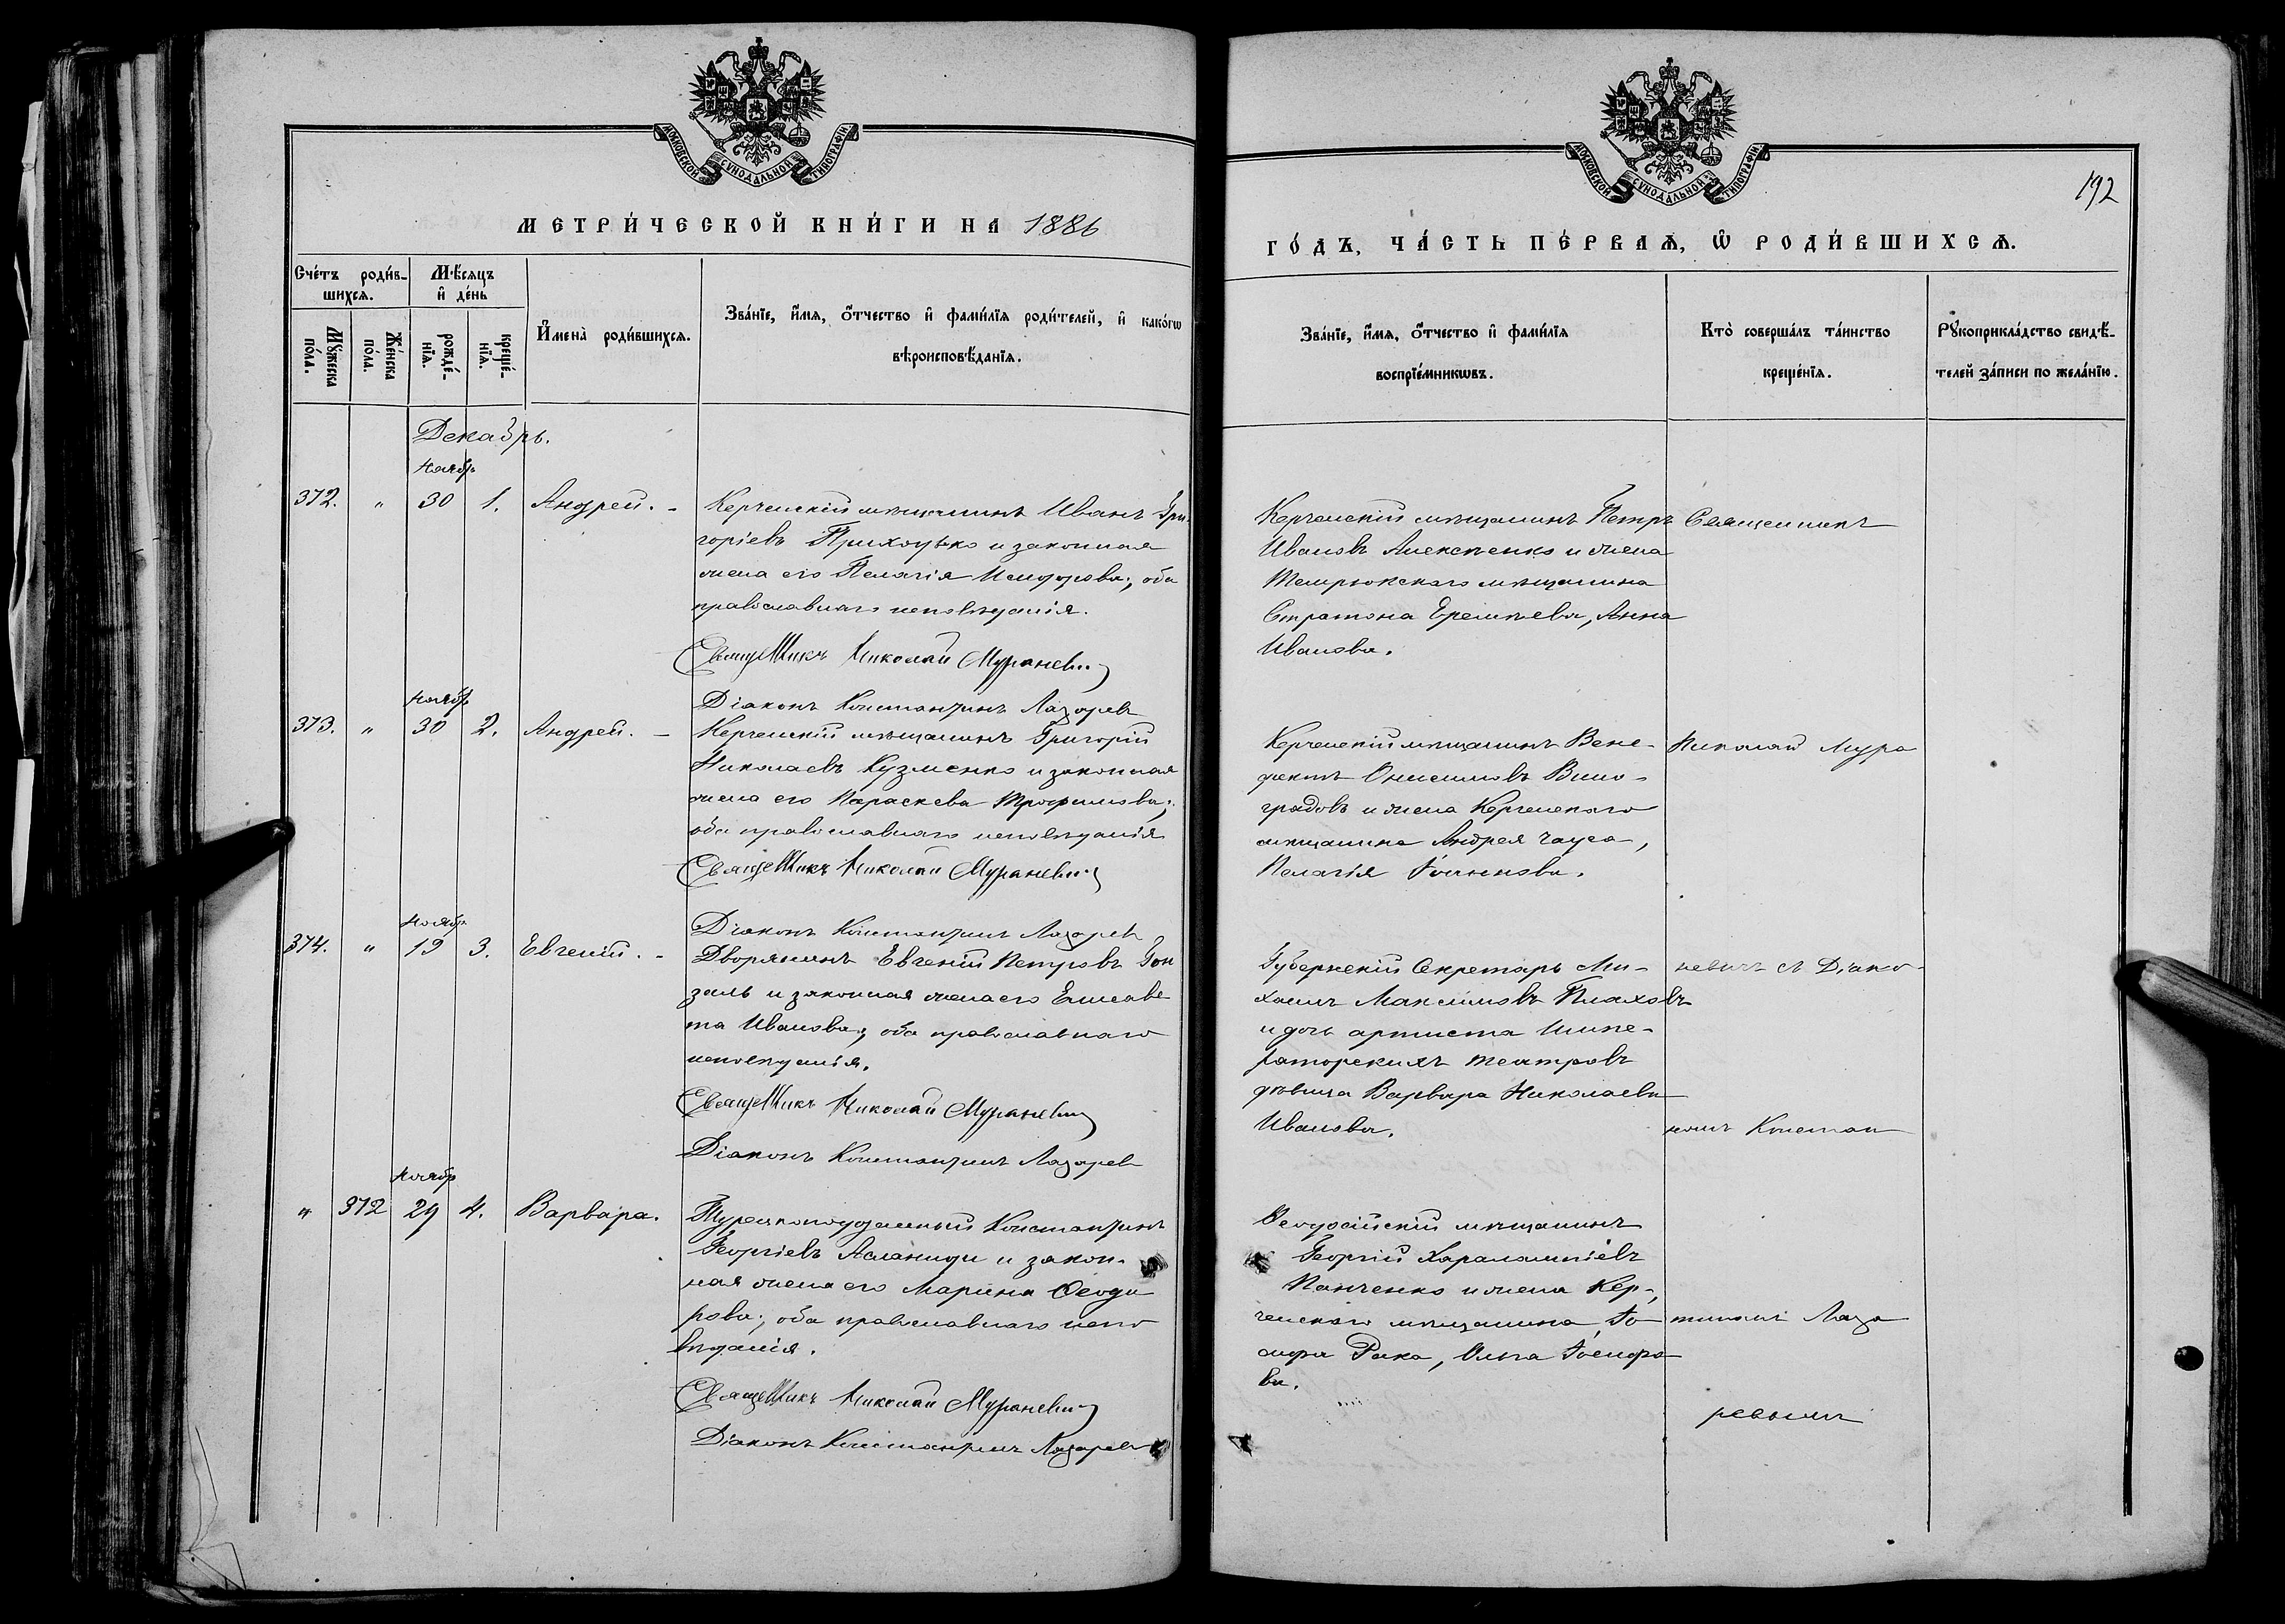 МОСКОВСКОЙ СУНОДАЛЬНОЙ ТИПОГРАФІИ
МЕТРИ́ЧЕСКОЙ КНИ́ГИ НА 1886
Сче́тъ роди́в-
шихсѧ.
Мѣ́сѧцъ
и҆ де́нь
Мꙋ́жеска
по́ла.
Же́нска
по́ла.
рожде́-
нїѧ.
креще́-
нїѧ.
И҆мена̀ роди́вшихсѧ.
Зва́нїе, и҆́мѧ, ѻ҆́тчество и҆ фами́лїѧ роди́телей, и҆ како́гѡ
вѣроисповѣ́данїѧ.
Декабрь.
Ноябр
372. " 30 1. Андрей. -
Керченскій мѣщанинъ Иванъ Гри-
горіевъ Приходько и законная
жена его Пелагія Исидорова; оба
православнаго исповѣданія.
Священникъ Николай Мураневич
Діаконъ Константинъ Лазарев
Ноябр
373. " 30 2. Андрей. -
Керченскій мѣщанинъ Григорій
Николаевъ Кузменко и законная
жена его Параскева Трофимова;
оба православнаго исповѣданія
Священникъ Николай Мураневич
Діаконъ Константинъ Лазарев
Ноябр.
374. " 19 3. Евгеній. -
Дворянинъ Евгеній Петровъ Гон
заль и законная жена его Елисаве
та Иванова; оба православнаго
исповѣданія.
Священникъ Николай Мураневич
Діаконъ Константинъ Лазарев
Ноябр
" 312 29 4. Варвара.
Турецкоподданный Константинъ
Георгіевъ Асланиди и закон-
ная жена его Марина Ѳеодо
рова; оба православнаго испо
вѣданія.
Священникъ Николай Мураневич
Діаконъ Константинъ Лазарев
МОСКОВСКОЙ СУНОДАЛЬНОЙ ТИПОГРАФІИ
192
ГО́ДЪ, ЧА́СТЬ ПЕ́РВАѦ, Ѡ҆ РОДИ́ВШИХСѦ.
Зва́нїе, и҆́мѧ, ѻ҆́тчество и҆ фами́лїѧ
воспрїе́мникѡвъ.
Кто̀ соверша́лъ та́инство
креще́нїѧ.
Рꙋкоприкла́дство свидѣ́-
телей за́писи по жела́нїю.
Керченскій мѣщанинъ Петръ
Ивановъ Алексѣенко и жена
Темрюкскаго мѣщанина
Стратона Еремѣева, Анна
Иванова.
Священникъ
Керченскій мѣщанинъ Вене-
диктъ Онисимовъ Вино-
градовъ и жена Керченскаго
мѣщанина Андрея Чауса,
Пелагія
Николай Мура
Губернскій Секретарь Ми-
хаилъ Максимовъ Плаховъ
и дочь артиста Импе-
раторскихъ театровъ
дѣвица Варвара Николаева
Иванова.
невичъ съ Діако-
номъ Констан
Ѳеодосійскій мѣщанинъ
Георгій Харалампіевъ
Панченко и жена Кер-
ченскаго мѣщанина, Іо-
сифа Рака, Ольга
ва.
тиномъ Лаза
ревымъ